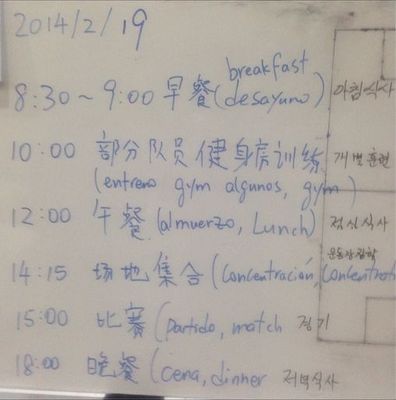 2014/2/19
breakfast
8:30~9:00 早餐(desayuno) 아침식사
10:00 部分队员健身房训练 개별훈련
(entreno gym algunos, gym)
12:00 午餐(almuerzo, Lunch) 점심식사
14:15 场地集合(Concentración, Concentrat 운동장집합
15:00 比赛(partido, match 경기
18:00 晚餐(cena, dinner 저녁식사